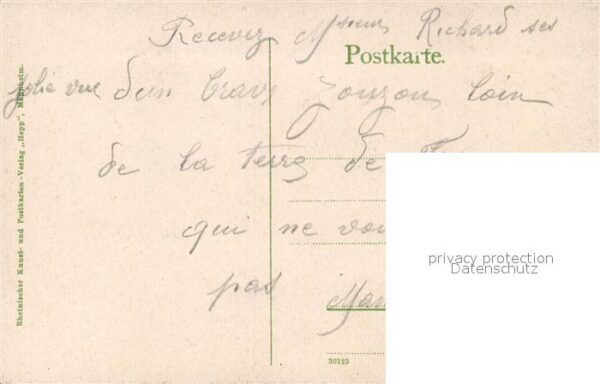 Recevez Msieur Richard ses
Postkarte.
jolie vue d'un brave zouzou loin
de la terre de F
qui ne vou
pas
Mar
Rheinischer Kunst- und Postkarten-Verlag „Hepp", Mannheim.
20125
privacy protection
Datenschutz